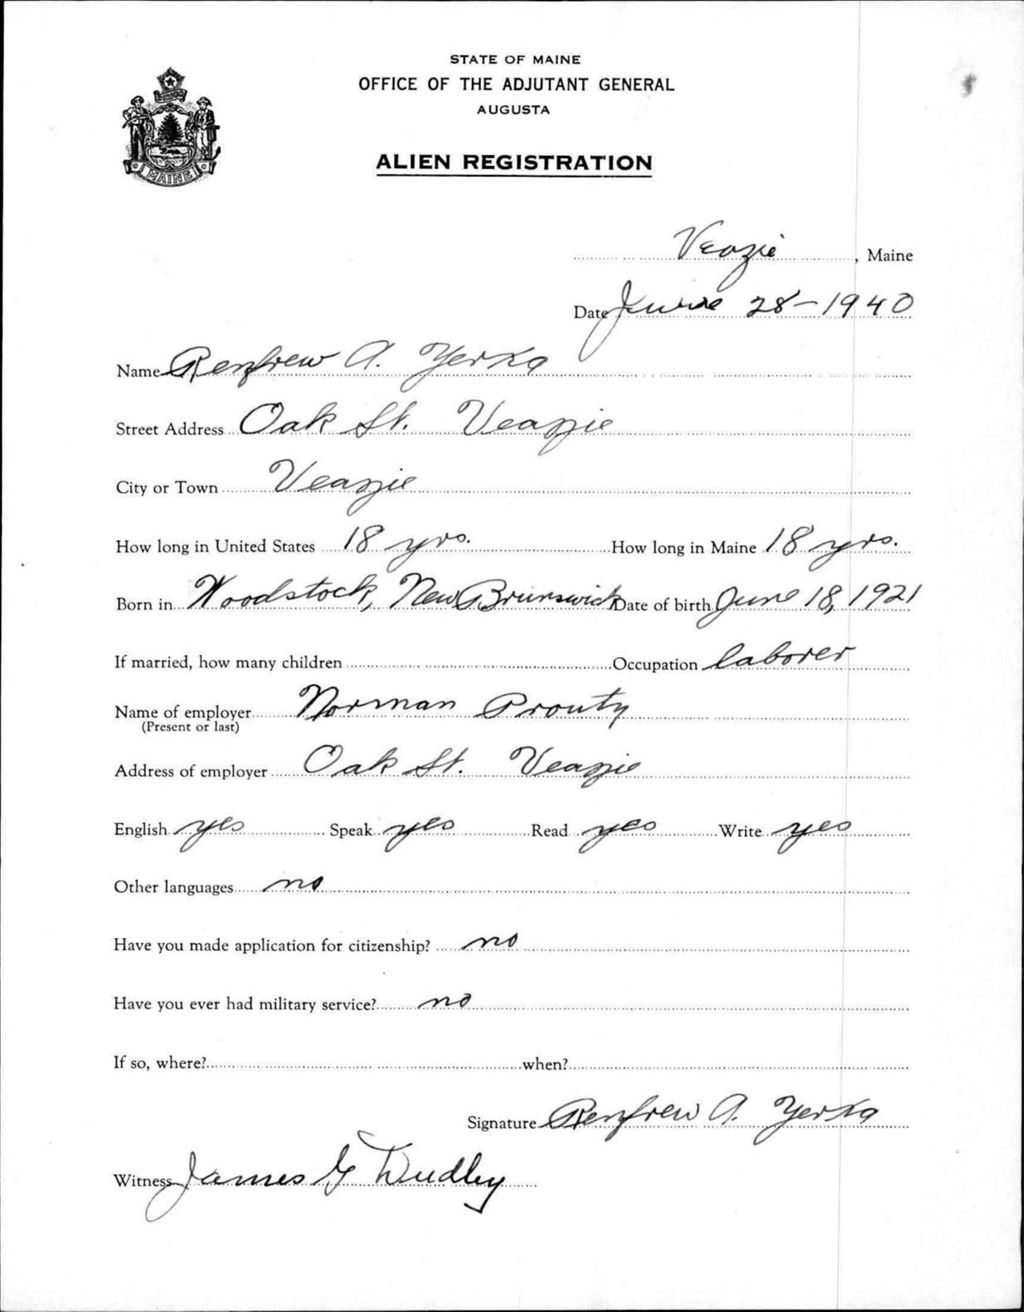 STATE OF MAINE
OFFICE OF THE ADJUTANT GENERAL
AUGUSTA
ALIEN REGISTRATION
MAINE
Veazie, Maine
Date June 28-1940
Name Renfrew A. Yerxa
Street Address Oak St. Veazie
City or Town Veazie
How long in United States 18 yrs. How long in Maine 18 yrs.
Born in Woodstock, New Brunswick Date of birth June 18, 1921
If married, how many children Occupation laborer
Name of employer Norman Prouty
(Present or last)
Address of employer Oak St. Veazie
English yes Speak yes Read yes Write yes
Other languages no
Have you made application for citizenship? no
Have you ever had military service? no
If so, where? when?
Signature Renfrew A. Yerxa
Witness James G Dudley